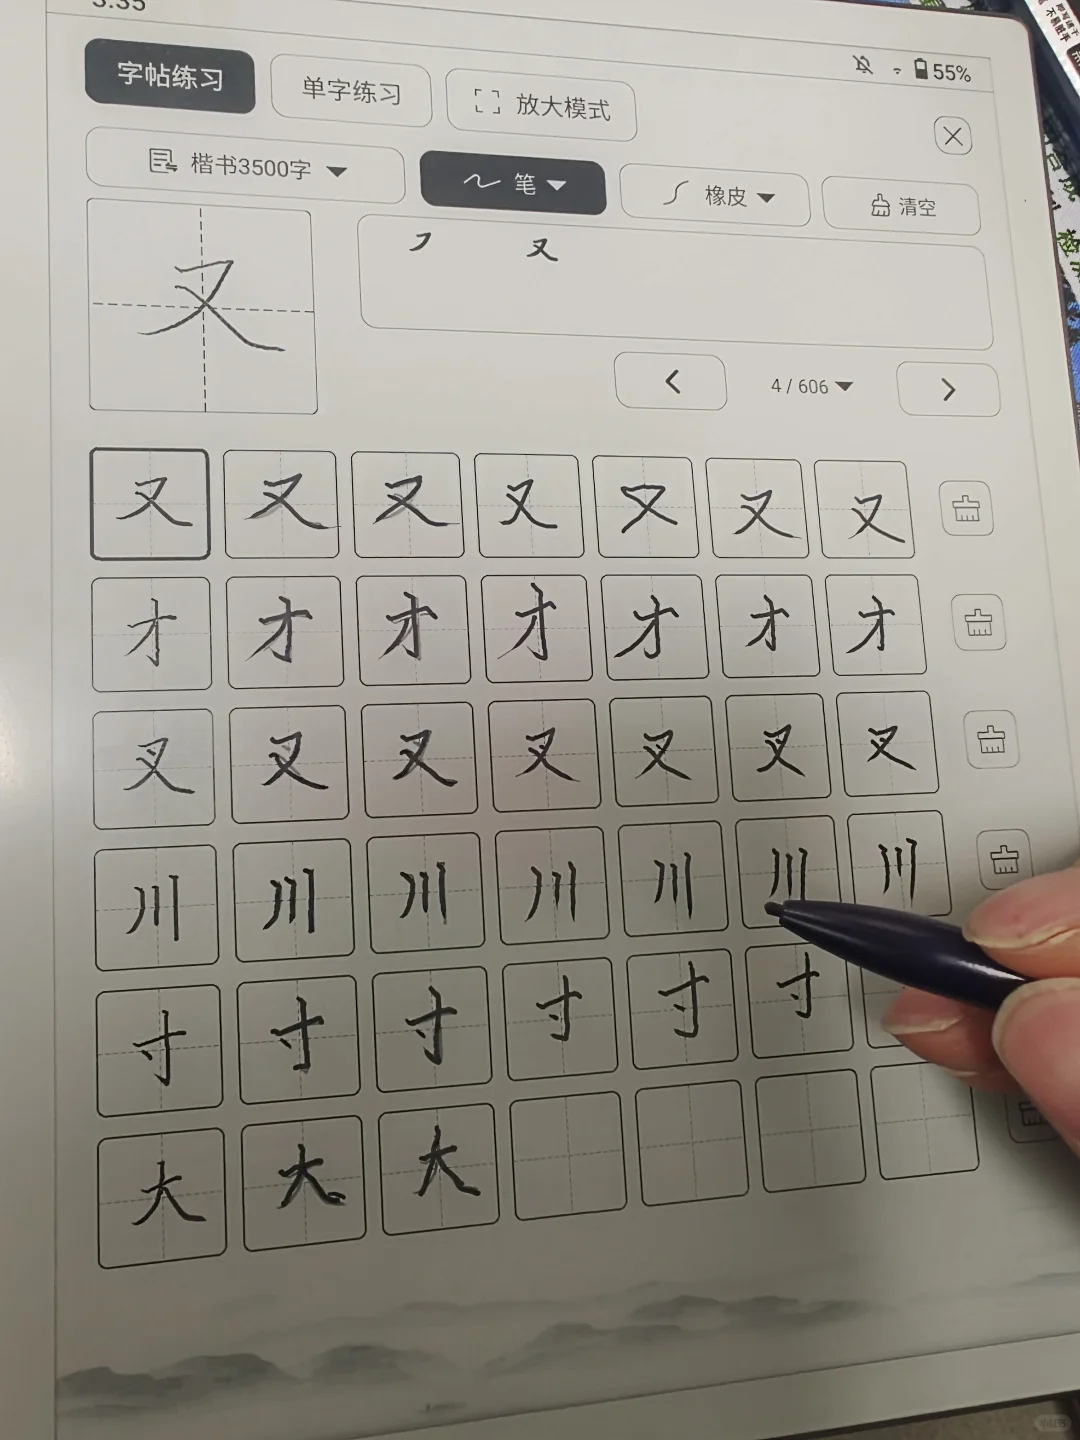 3:35
55%
字帖练习 单字练习 放大模式
楷书3500字 笔 橡皮 清空
又
又
4 / 606
又 又 又 又 又 又 又
才 才 才 才 才 才 才
叉 叉 叉 叉 叉 叉 叉
川 川 川 川 川 川 川
寸 寸 寸 寸 寸 寸
大 大 大